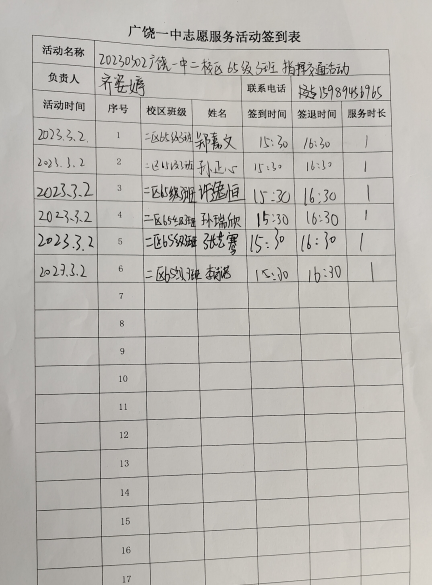 广饶一中志愿服务活动签到表
活动名称 20230302广饶一中二校区65级3班 指挥交通活动
负责人 联系电话 15989456965
活动时间 序号 校区班级 姓名 签到时间 签退时间 服务时长
2023.3.2. 1 二区65级3班 郑嘉文 15:30 16:30 1
2023.3.2 2 二区65级3班 孙正心 15:30 16:30 1
2023.3.2 3 二区65级3班 许德恒 15:30 16:30 1
2023.3.2 4 二区65级3班 孙瑞欣 15:30 16:30 1
2023.3.2 5 二区65级3班 15:30 16:30 1
2023.3.2 6 二区65级3班 15:30 16:30 1
7
8
9
10
11
12
13
14
15
16
17